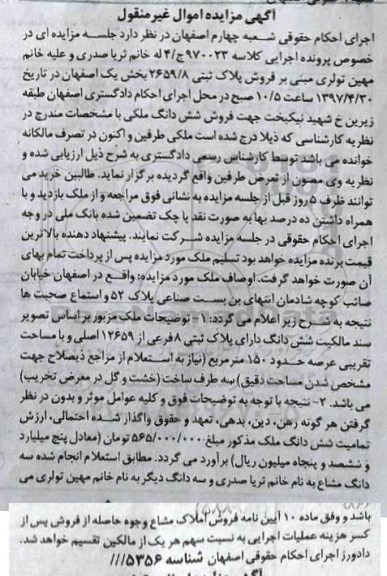 آگهی مزایده اموال غیر منقول
اجرای احکام حقوقی شعبه چهارم اصفهان در نظر دارد جلسه مزایده ای در
خصوص پرونده اجرایی کلاسه ۹۷۰۰۲۳ج/۴ له خانم ثریا صدری و علیه خانم
مهین تولری مبنی بر فروش پلاک ثبتی ۲۶۵۹/۸ بخش یک اصفهان در تاریخ
۱۳۹۷/۴/۳۰ ساعت ۱۰/۵ صبح در محل اجرای احکام دادگستری اصفهان طبقه
زیرین خ شهید نیکبخت جهت فروش شش دانگ ملکی با مشخصات مندرج در
نظریه کارشناسی که ذیلا درج شده است ملکی طرفین و اکنون در تصرف مالکانه
خوانده می باشد توسط کارشناس رسمی دادگستری به شرح ذیل ارزیابی شده و
نظریه وی مصون از تعرض طرفین واقع گردیده برگزار نماید. طالبین خرید می
توانند ظرف ۵ روز قبل از جلسه مزایده به نشانی فوق مراجعه و از ملک بازدید و با
همراه داشتن ده درصد بها به صورت نقد یا چک تضمین شده بانک ملی در وجه
اجرای احکام حقوقی در جلسه مزایده شرکت نمایند. پیشنهاد دهنده بالاترین
قیمت برنده مزایده خواهد بود تسلیم ملک مورد مزایده پس از پرداخت تمام بهای
آن صورت خواهد گرفت. اوصاف ملک مورد مزایده: واقع در اصفهان خیابان
صائب کوچه شادمان انتهای بن بست صناعی پلاک ۵۲ و استماع صحبت ها
نتیجه به شرح زیر اعلام می گردد: ۱- توضیحات ملک مزبور بر اساس تصویر
سند مالکیت شش دانگ دارای پلاک ثبتی ۸ فرعی از ۱۲۶۵۹ اصلی و با مساحت
تقریبی عرصه حدود ۱۵۰ متر مربع (نیاز به استعلام از مراجع ذیصلاح جهت
مشخص شدن مساحت دقیق) سه طرف ساخت (خشت و گل در معرض تخریب)
می باشد. ۲- نتیجه با توجه به توضیحات فوق و کلیه عوامل موثر و بدون در نظر
گرفتن هر گونه رهن، دین، بدهی، تعهد و حقوق واگذار شده احتمالی، ارزش
تمامیت شش دانگ ملک مذکور مبلغ ۵۶۵/۰۰۰/۰۰۰ تومان (معادل پنج میلیارد
و ششصد و پنجاه میلیون ریال) برآورد می گردد. مطابق استعلام انجام شده سه
دانگ مشاع به نام خانم ثریا صدری و سه دانگ دیگر به نام خانم مهین تولری می
باشد و وفق ماده ۱۰ آیین نامه فروش املاک مشاع وجوه حاصله از فروش پس از
کسر هزینه عملیات اجرایی به نسبت سهم هر یک از مالکین تقسیم خواهد شد.
دادورز اجرای احکام حقوقی اصفهان شناسه ۵۳۵۶///